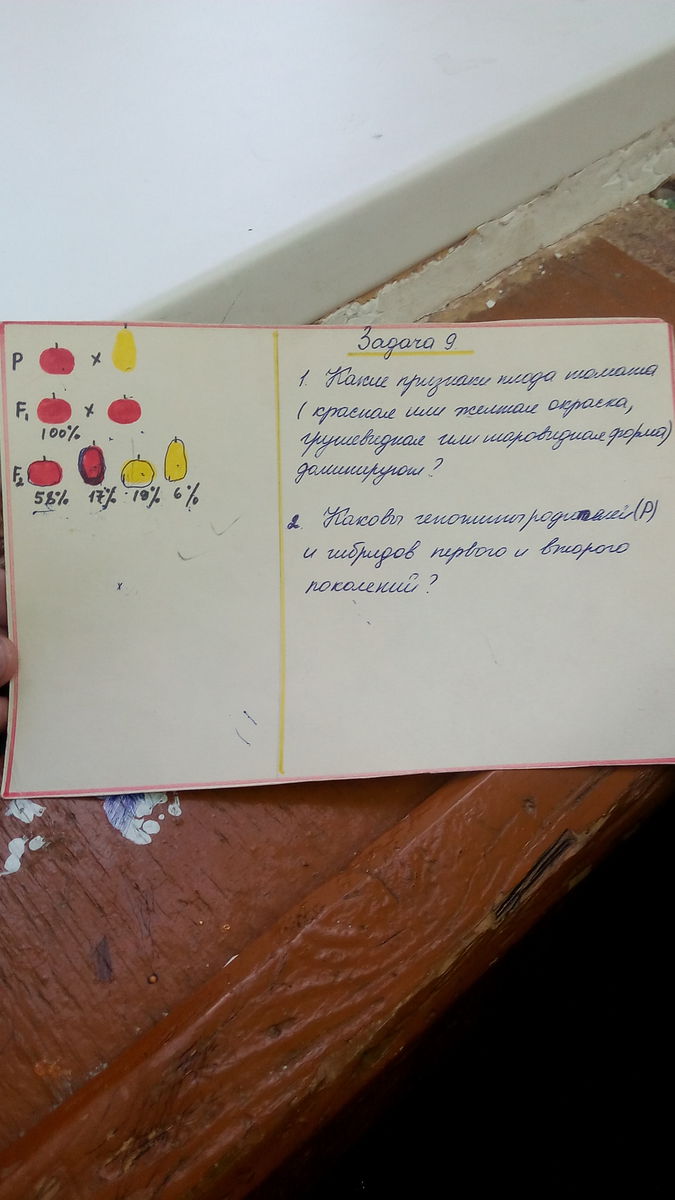 P х
F₁ х
100%
F₂
58% 17% 19% 6%
Задача 9
1. Какие признаки плода томата
( красная или желтая окраска,
грушевидная или шаровидная форма)
доминируют?
2. Каковы генотипы родителей (P)
и гибридов первого и второго
поколений?